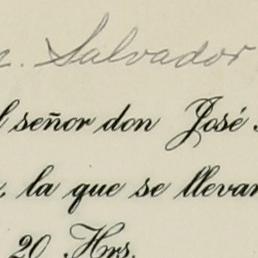 Salvador
señor don José
la que se llevar
20 Hrs.